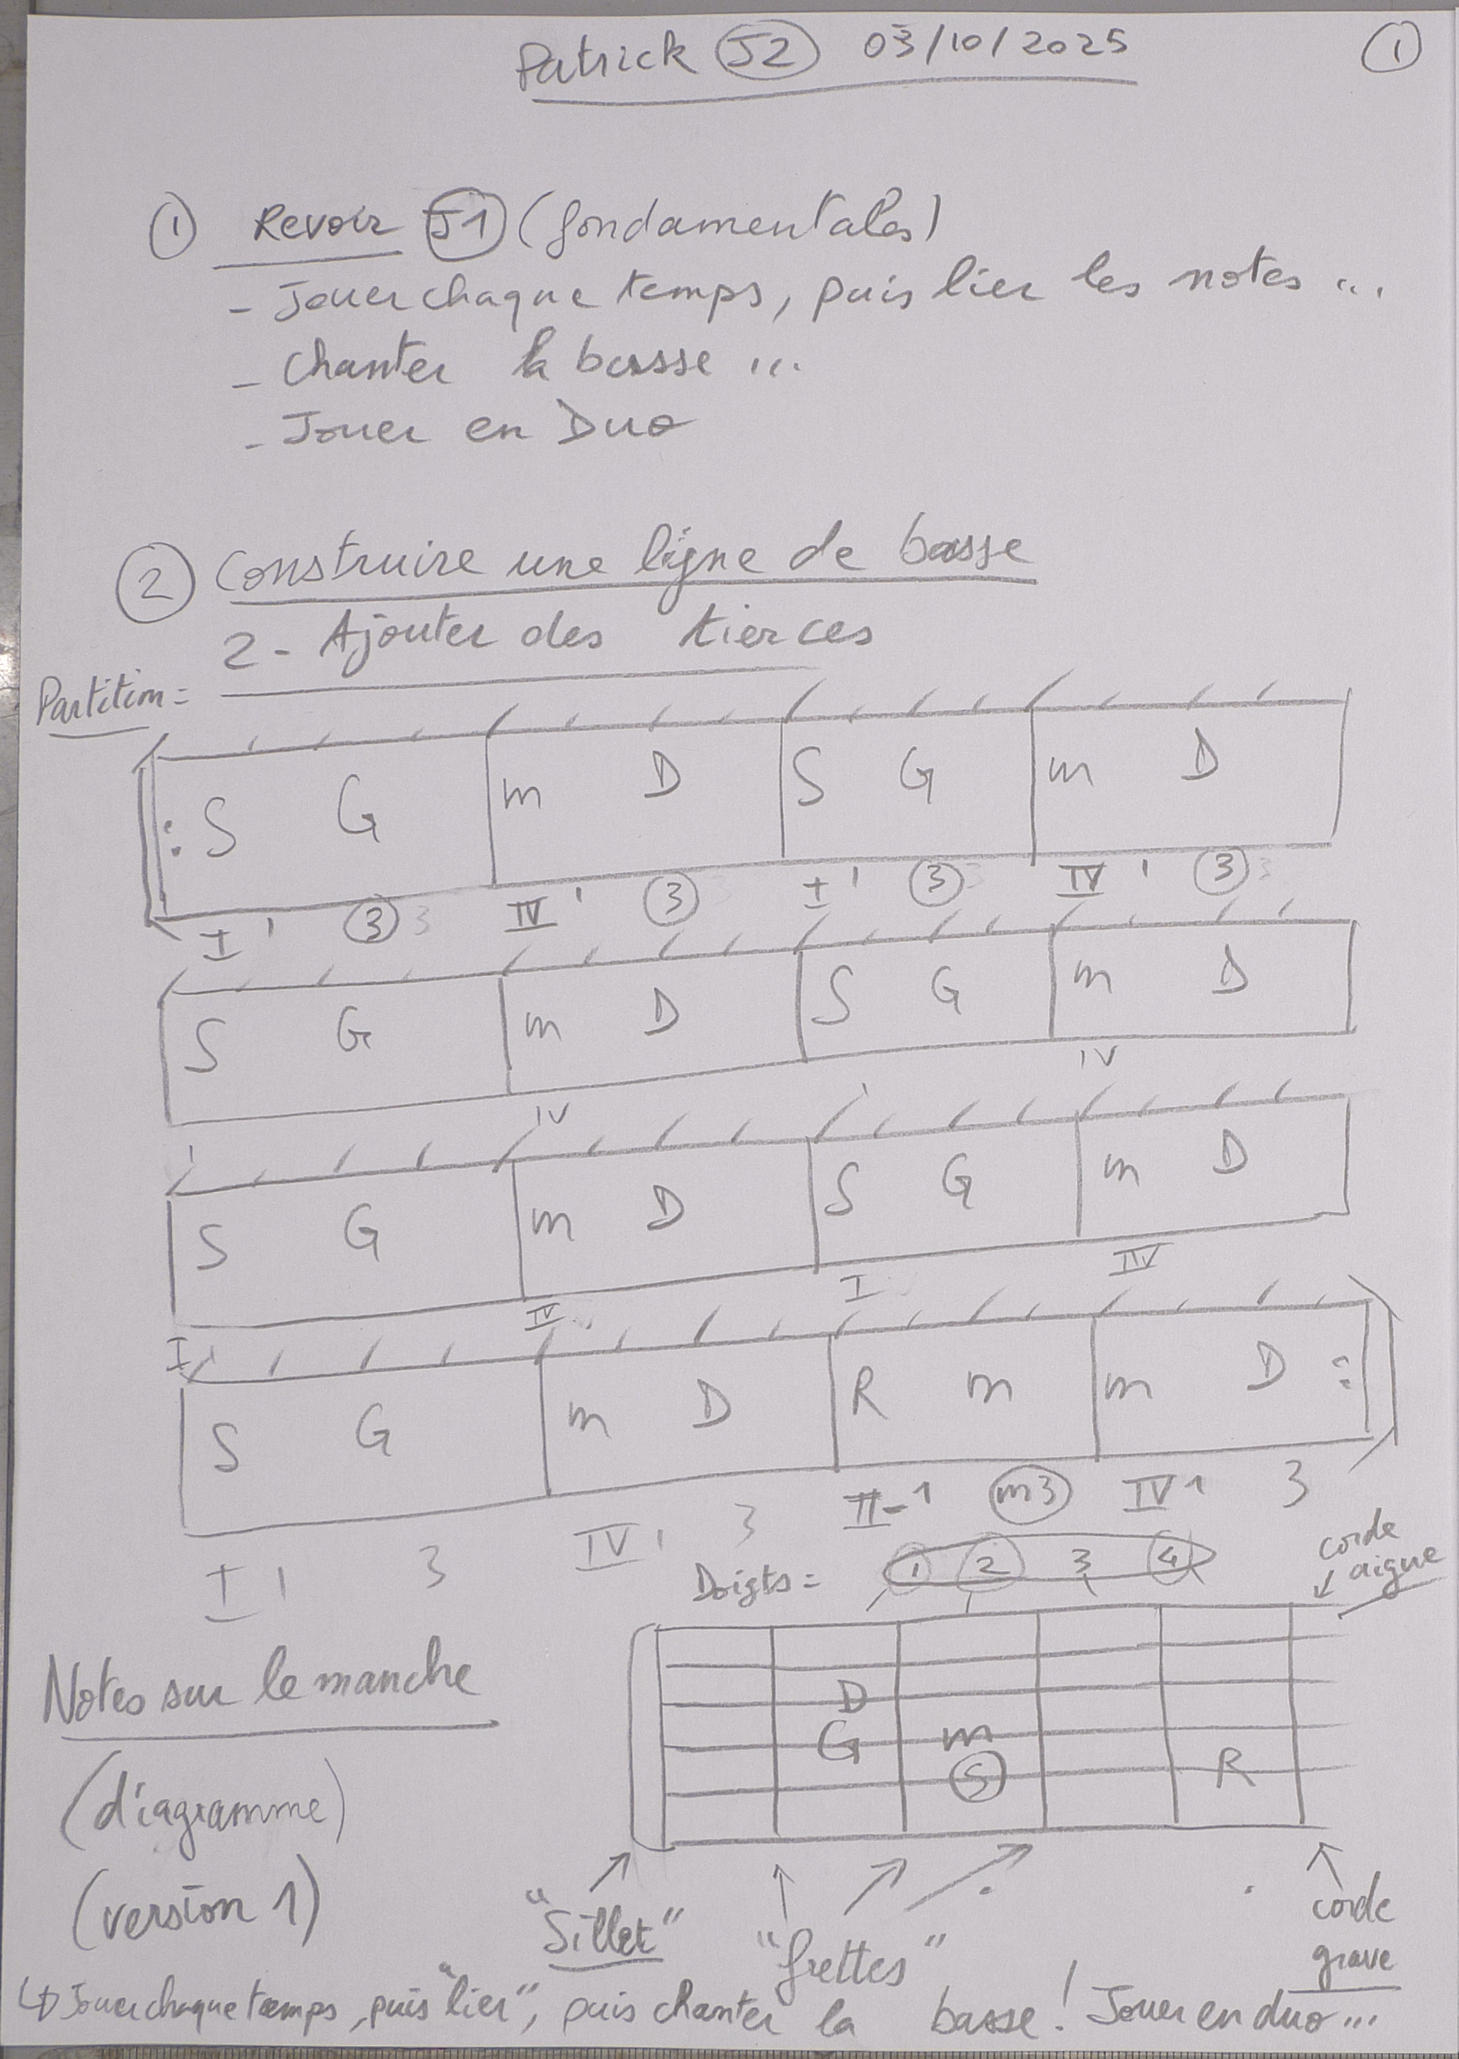 Patrick J2 03/10/2025 1
1 Revoir J1 (fondamentales)
- Jouer chaque temps, puis lier les notes ...
- Chanter la basse ...
- Jouer en Duo
2 Construire une ligne de basse
2 - Ajouter des tierces
Partition =
: S G m D S G m D
I 1 3 3 IV 1 3 3 I 1 3 3 IV 1 3 3
S G m D S G m D
I IV I IV
S G m D S G m D
I IV I IV
S G m D R m m D :
I 1 3 IV 1 3 II- 1 m3 IV 1 3
Doigts = 1 2 3 4
corde aigue
Notes sur le manche
(diagramme)
(version 1)
D
G m
S R
"Sillet" "frettes" corde grave
↳ Jouer chaque temps, puis "lier", puis chanter la basse ! Jouer en duo ...